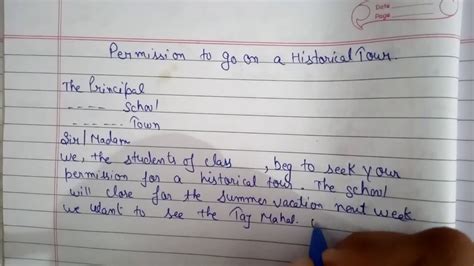 Date
Page
Permission to go on a Historical Tour.
The Principal
---- School
------ Town
Sir/Madam
we, the students of class , beg to seek your
permission for a historical tour. The school
will close for the summer vacation next week
we want to see the Taj Mahal.